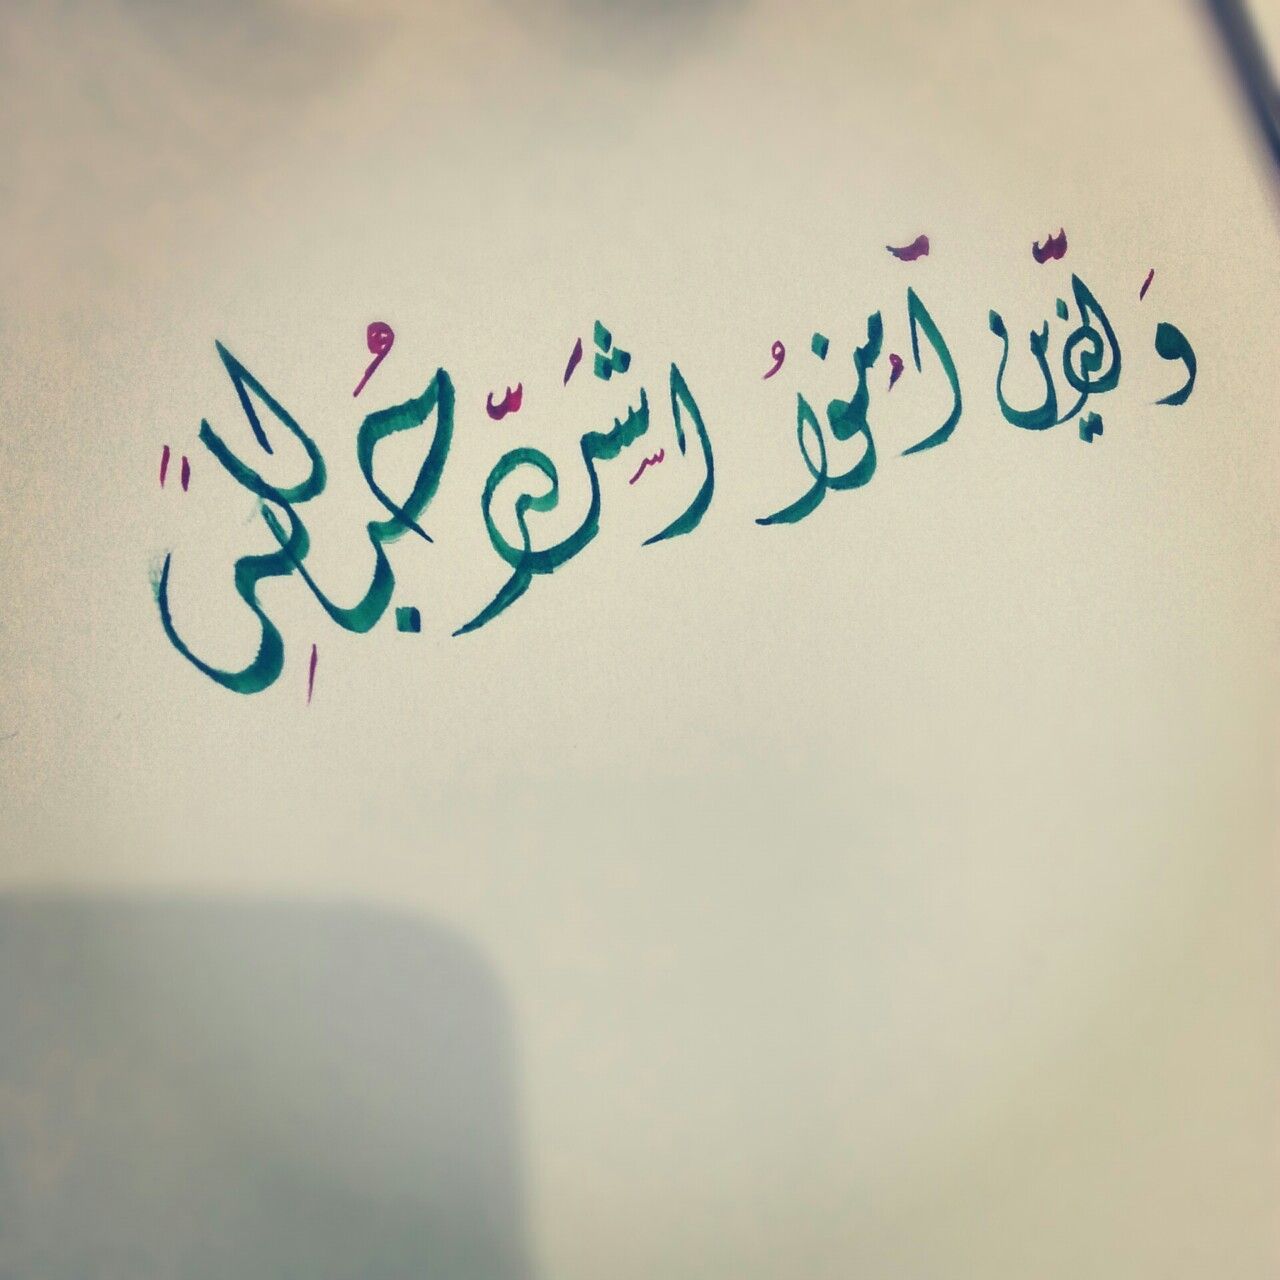 وَ الّذين آمُنوُا اشَدّ حُباً